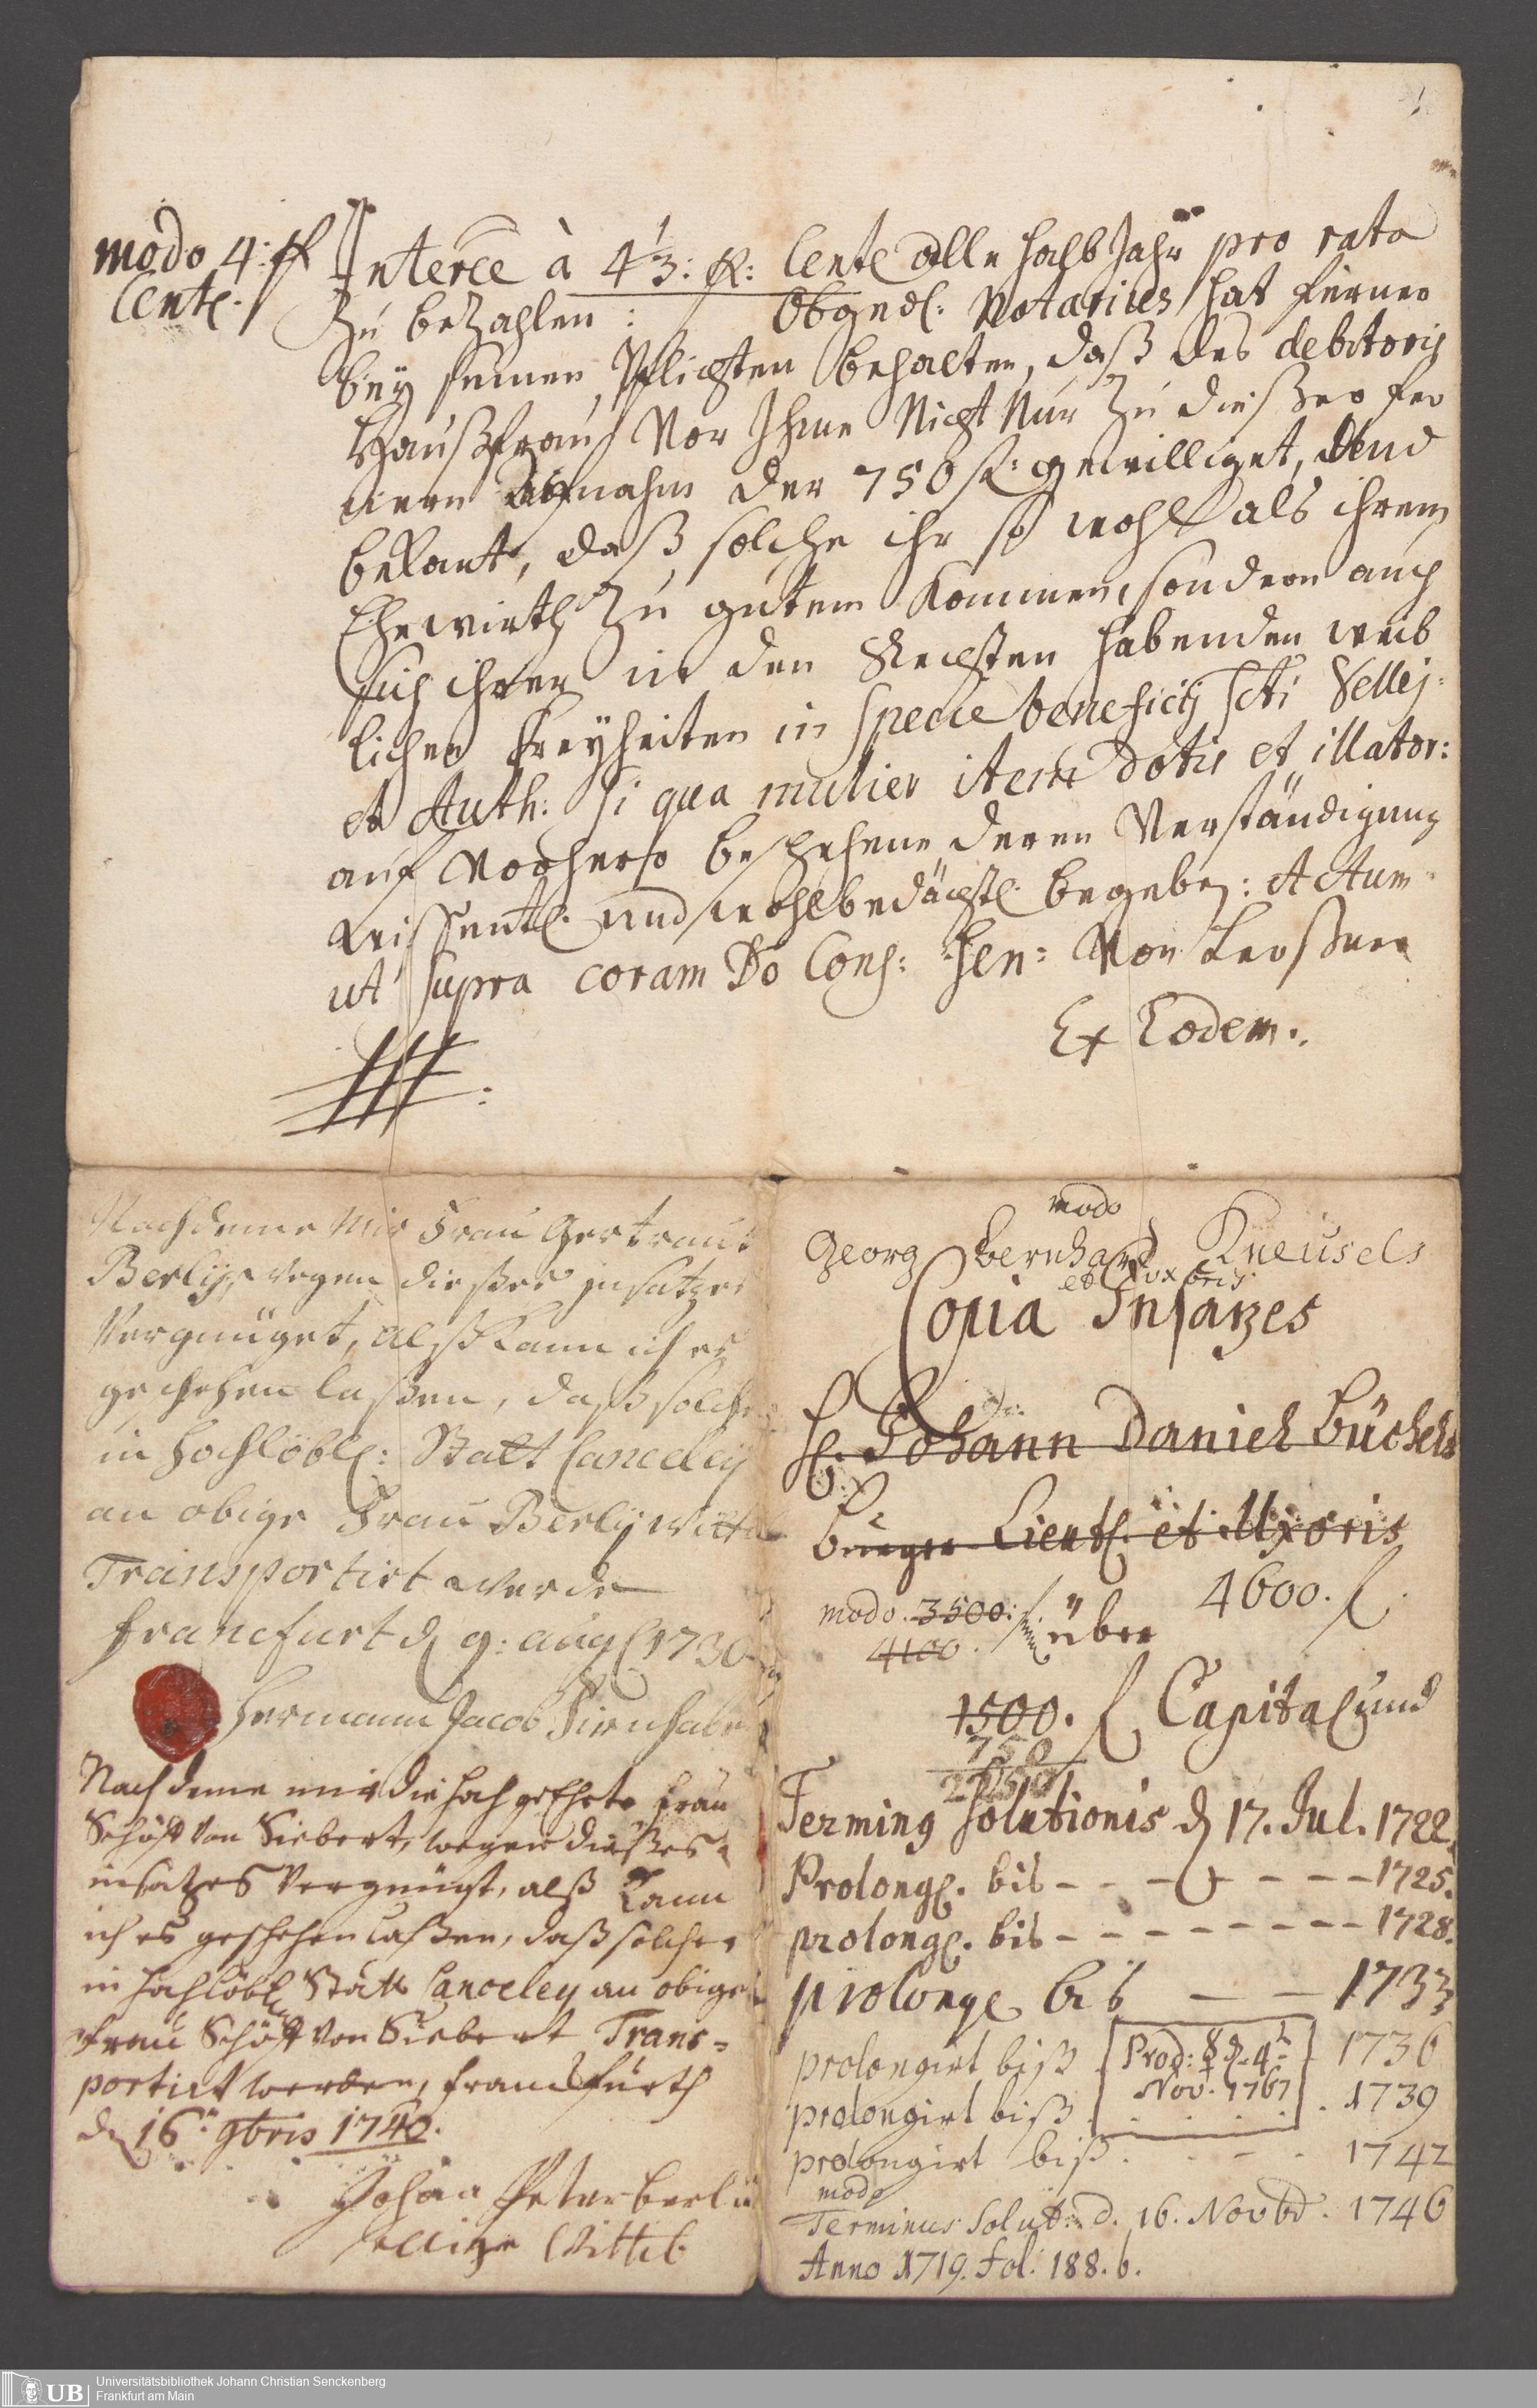 modo 4: pr
Cente.
Interce à 4 1/3: pr: Cente alle halb Jahr pro rata
zu bezahlen: Obgedl: Notarius hat ferner
bey seinen Pflichten behalten, daß des debitoris
Haußfrau vor Ihme nicht nur zu dießer fer
nern Aufnahm der 750 fl: gewilliget, und
bekant, daß solche ihr so wohl als ihrem
Ehewirth zu gutem kommen, sondern auch
sich ihrer in den Rechten habenden weib
lichen Freyheiten in specie beneficij scti Vellej:
et Auth: si qua mulier item dotis et illator:
auf vorhero beschehene deren Verständigung
wissentl. und wohlbedächtl. begeben: Actum
ut supra coram Do Cons: Sen: von Lerßner
Ex Eodem.
Nachdeme mir Frau Gertraut
Berlijn wegen dießes insatzes
Vergnüget, alß kann ich es
geschehen laßen, daß solcher
in hochlöbl: Statt Canceley
an obige Frau Berlij Wittib
Transportirt werde
Francfurt d 9: aug 1730
Hermann Jacob Firnhaber
Nach deme mir die hochgeEhrte Frau
Schöff von Siebert, wegen dießes
insatzes Vergnügt, alß kann
ich es geschehen laßen, daß solcher
in hochlöbl Statt Canceley an obige
Frau Schöff von Siebert Trans=
portirt werden, Franckfurth
d 16n 9bris 1740.
Johan Peter Berlin
Wittib
modo
Georg Bernhard Kneusels
et uxoris
Copia Insatzes
H. Johann Daniel Büchels
Burger Lieut. et Uxoris
modo. 3500: 4600. f.
4100. über
1500. f Capital und
750
2250
Terming Solutionis d 17. Jul. 1722.
Prolong. bis - - - - - - - 1725.
prolong. bis - - - - - - - - 1728.
prolong bis - - 1733
prolongirt biß Prod: d. 4t 1736
Nov. 1767
prolongirt biß . . . . . 1739
prolongirt biß . . - - . 1742
modo
Terminus Solut: d. 16. Novbr. 1746
Anno 1719. fol. 188. b.
UB
Universitätsbibliothek Johann Christian Senckenberg
Frankfurt am Main